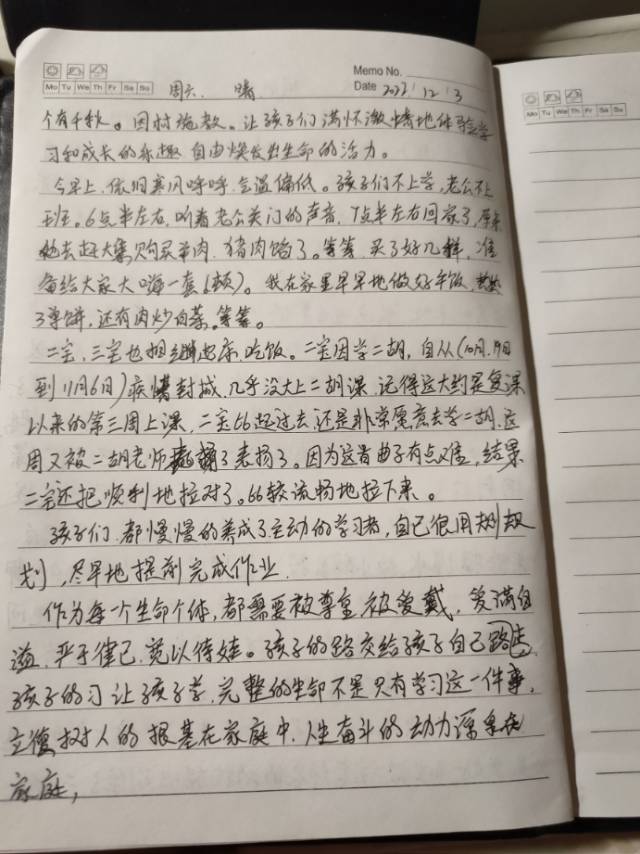 Memo No.
Mo Tu We Th Fr Sa Su
周六. 晴
Date 2022 / 12 / 3
个有千秋。因材施教。让孩子们满怀激情地体验学
习和成长的乐趣 自由焕发出生命的活力。
今早上,依旧寒风呼呼,气温偏低。孩子们不上学,老公不上
班。6点半左右,听着老公关门的声音,7点半左右回家了,原来
他去赶大集,购买羊肉,猪肉馅了。等等,买了好几样,准
备给大家大嗨一套(顿)。我在家里早早地做好午饭,
了单饼,还有肉炒白菜。等等。
二宝,三宝也相继起床吃饭。二宝因学二胡,自从(10月.19日
到11月6日)疫情封城,几乎没大上二胡课,记得这大约是复课
以来的第三周上课,二宝比起过去还是非常愿意去学二胡,这
周又被二胡老师表扬了。因为这首曲子有点难,结果
二宝还把顺利地拉对了。比较流畅地拉下来。
孩子们,都慢慢的养成了主动的学习者,自己很用规
划,尽早地提前完成作业.
作为每一个生命个体,都需要被尊重,被爱戴,爱满自
溢,严于律己,宽以待娃。孩子的路交给孩子自己走,
孩子的习让孩子学,完整的生命不是只有学习这一件事,
立德树人的根基在家庭中,人生奋斗的动力源泉在
家庭,
Mo Tu We Th Fr Sa Su